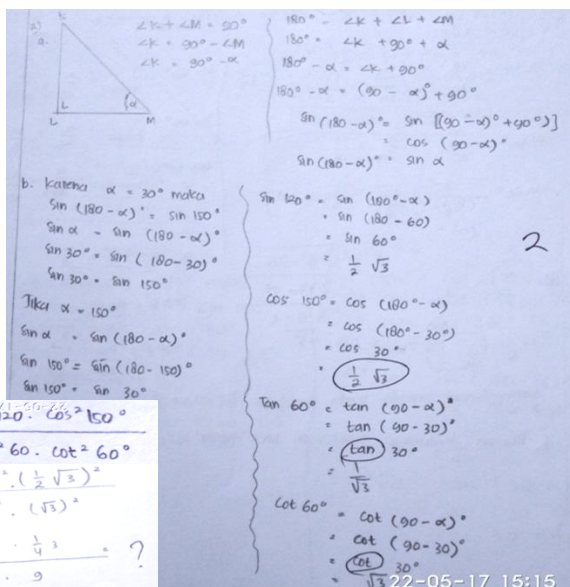 a)
a.
L
α
L
M
∠K + ∠M = 90°
∠K = 90° - ∠M
∠K = 90° - α
180° = ∠K + ∠L + ∠M
180° = ∠K + 90° + α
180° - α = ∠K + 90°
180° - α = (90 - α)° + 90°
Sin (180 - α)° = sin [(90 - α)° + 90°)]
= cos (90 - α)°
Sin (180 - α)° = sin α
b. karena α = 30° maka
Sin (180 - α)° = sin 150°
Sin α = sin (180 - α)°
Sin 30° = sin (180 - 30)°
Sin 30° = sin 150°
Jika α = 150°
Sin α = sin (180 - α)°
Sin 150° = sin (180 - 150)°
Sin 150° = sin 30°
Sin 120° = sin (180° - α)
= sin (180 - 60)
= sin 60°
= 1/2 √3
2
Cos 150° = cos (180° - α)
= cos (180° - 30°)
= cos 30°
= 1/2 √3
Tan 60° = tan (90 - α)°
= tan (90 - 30)°
= tan 30°
= 1/√3
Cot 60° = cot (90 - α)°
= cot (90 - 30)°
= cot 30°
= √3
120 . cos² 150°
² 60 . cot² 60°
² . (1/2 √3)²
. (√3)²
. 1/4 3 = ?
. 9
22-05-17 15:15